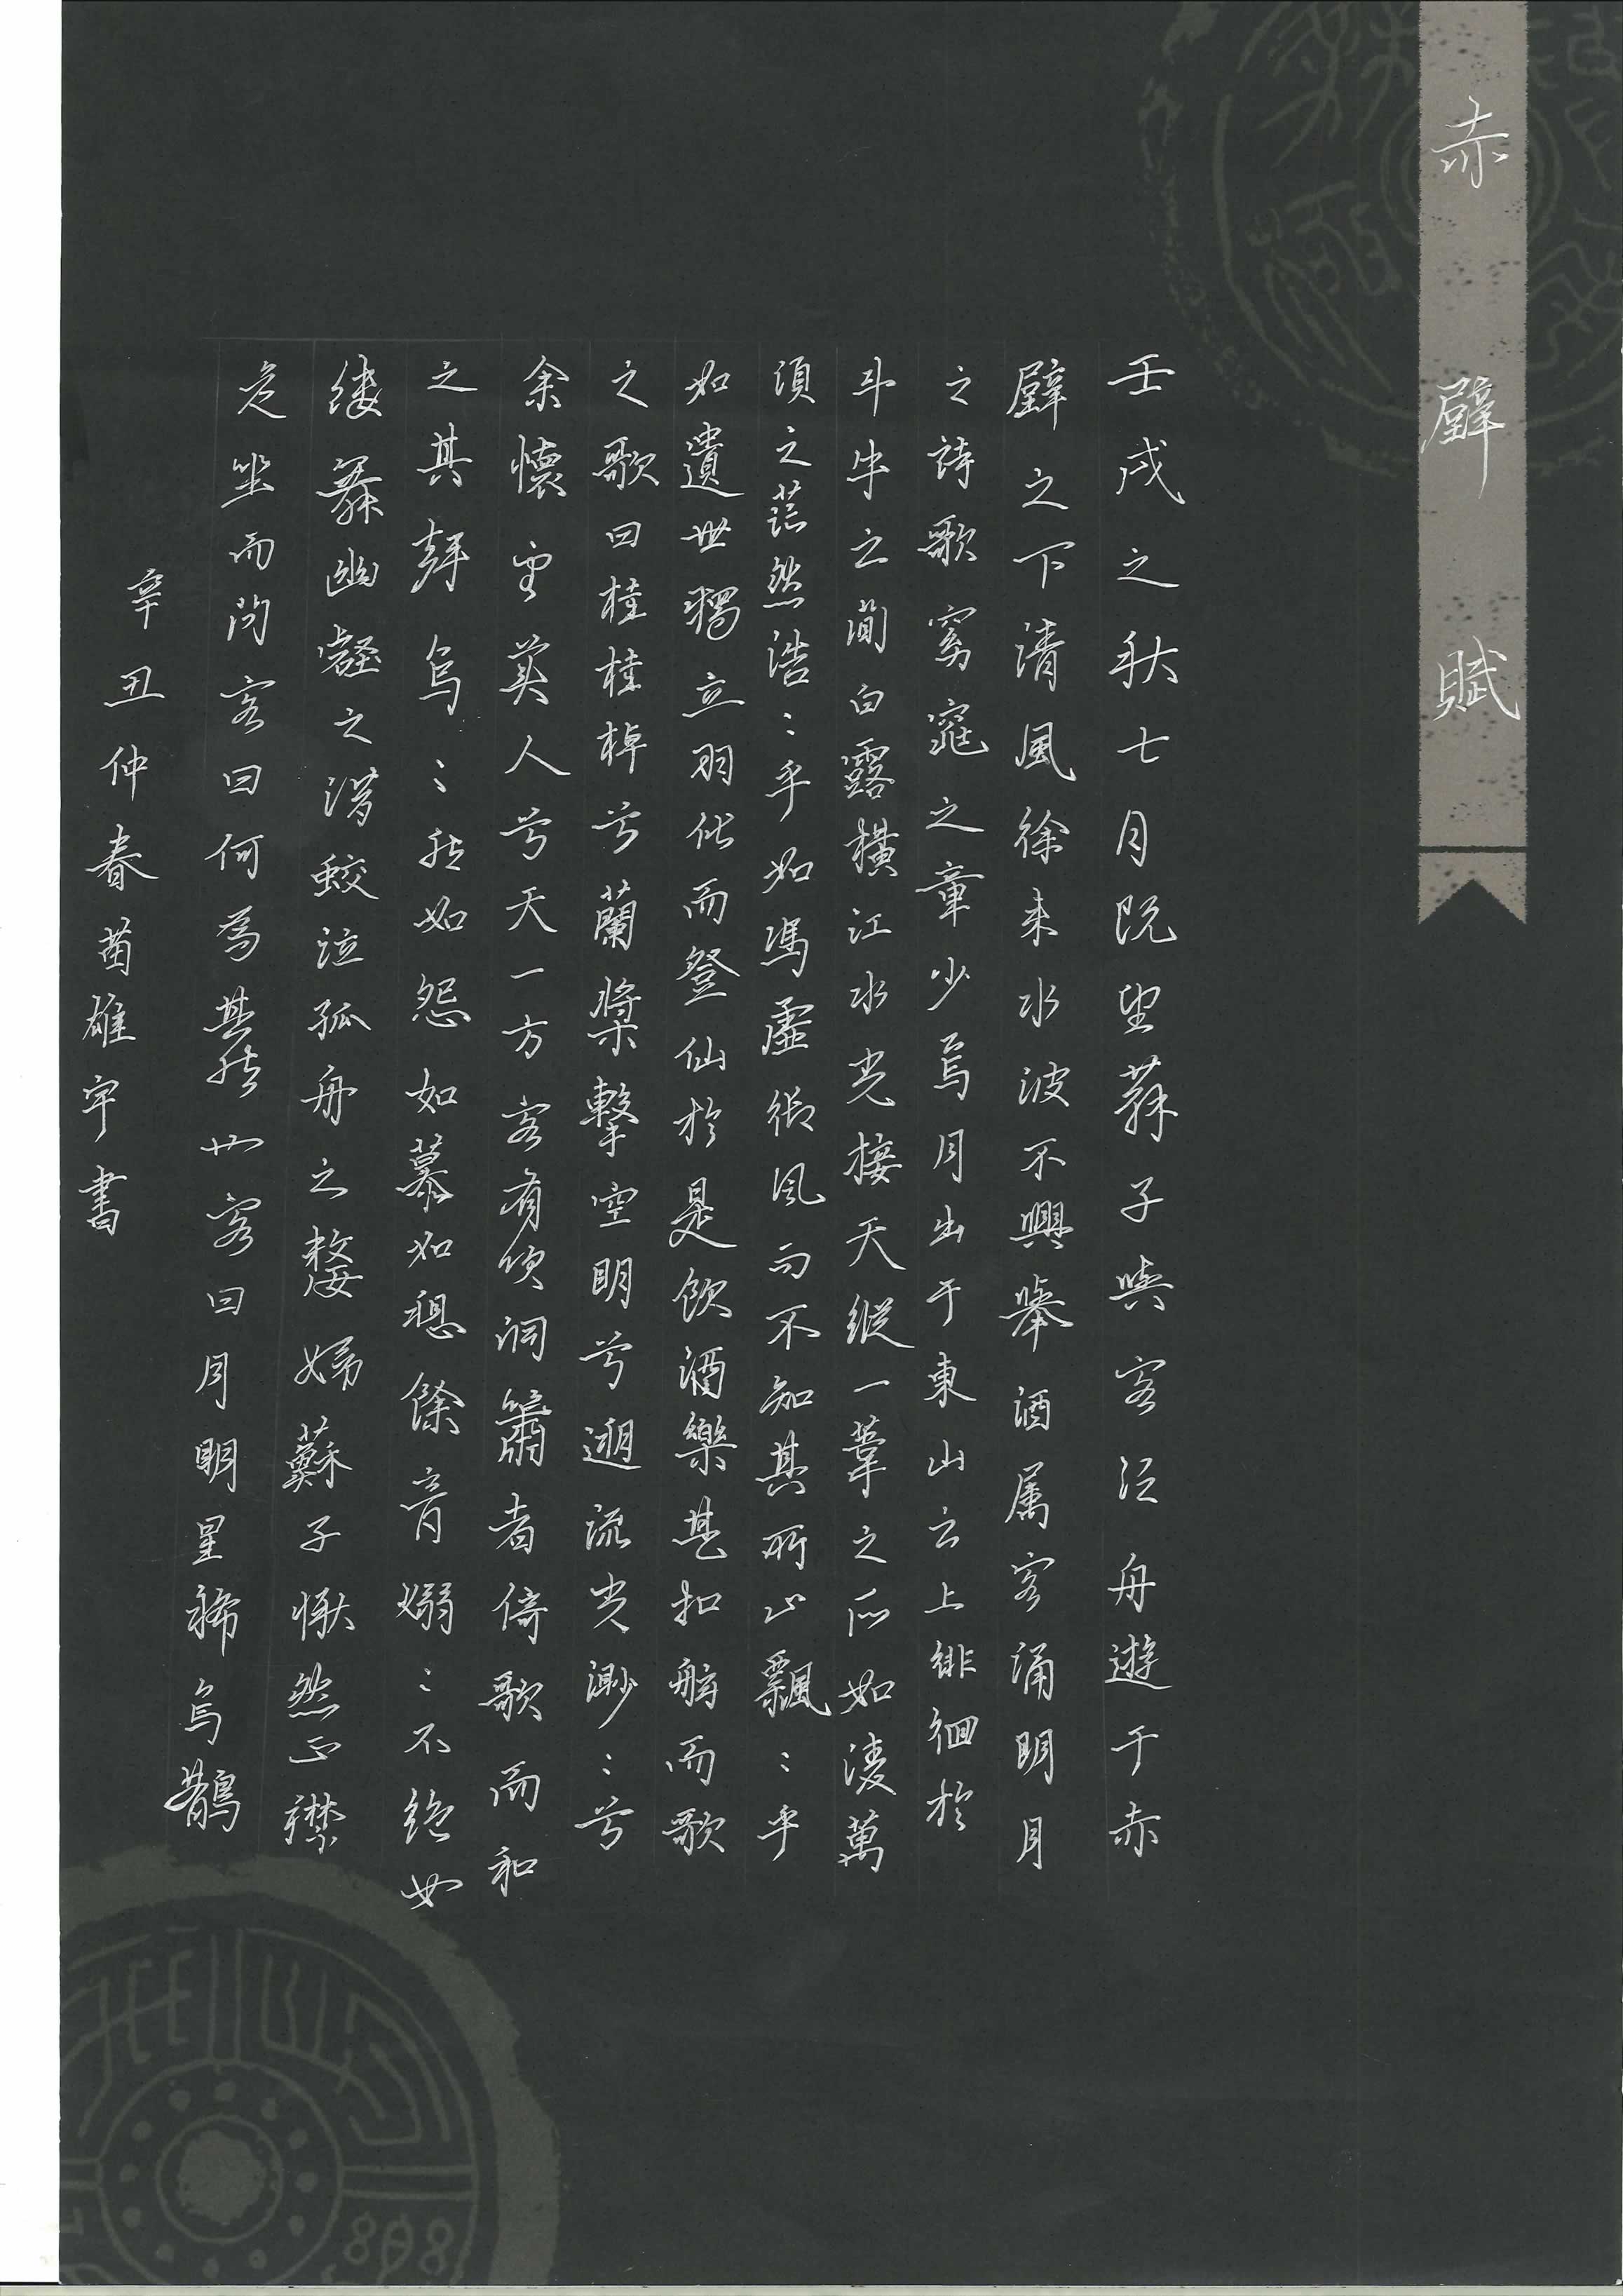 赤壁賦
壬戌之秋七月既望蘇子與客泛舟遊于赤
壁之下清風徐来水波不興舉酒属客誦明月
之詩歌窈窕之章少焉月出于東山之上徘徊於
斗牛之間白露橫江水光接天縱一葦之所如淩萬
頃之茫然浩〻乎如馮虛御風而不知其所止飄〻乎
如遺世獨立羽化而登仙於是飲酒樂甚扣舷而歌
之歌曰桂桂棹兮蘭槳擊空明兮遡流光渺〻兮
余懷望美人兮天一方客有吹洞簫者倚歌而和
之其聲烏〻然如怨如慕如泣餘音嫋〻不絕如
縷舞幽壑之潛蛟泣孤舟之嫠婦蘇子愀然正襟
危坐而問客曰何為其然也客曰月明星稀烏鵲
辛丑仲春苗雄宇書